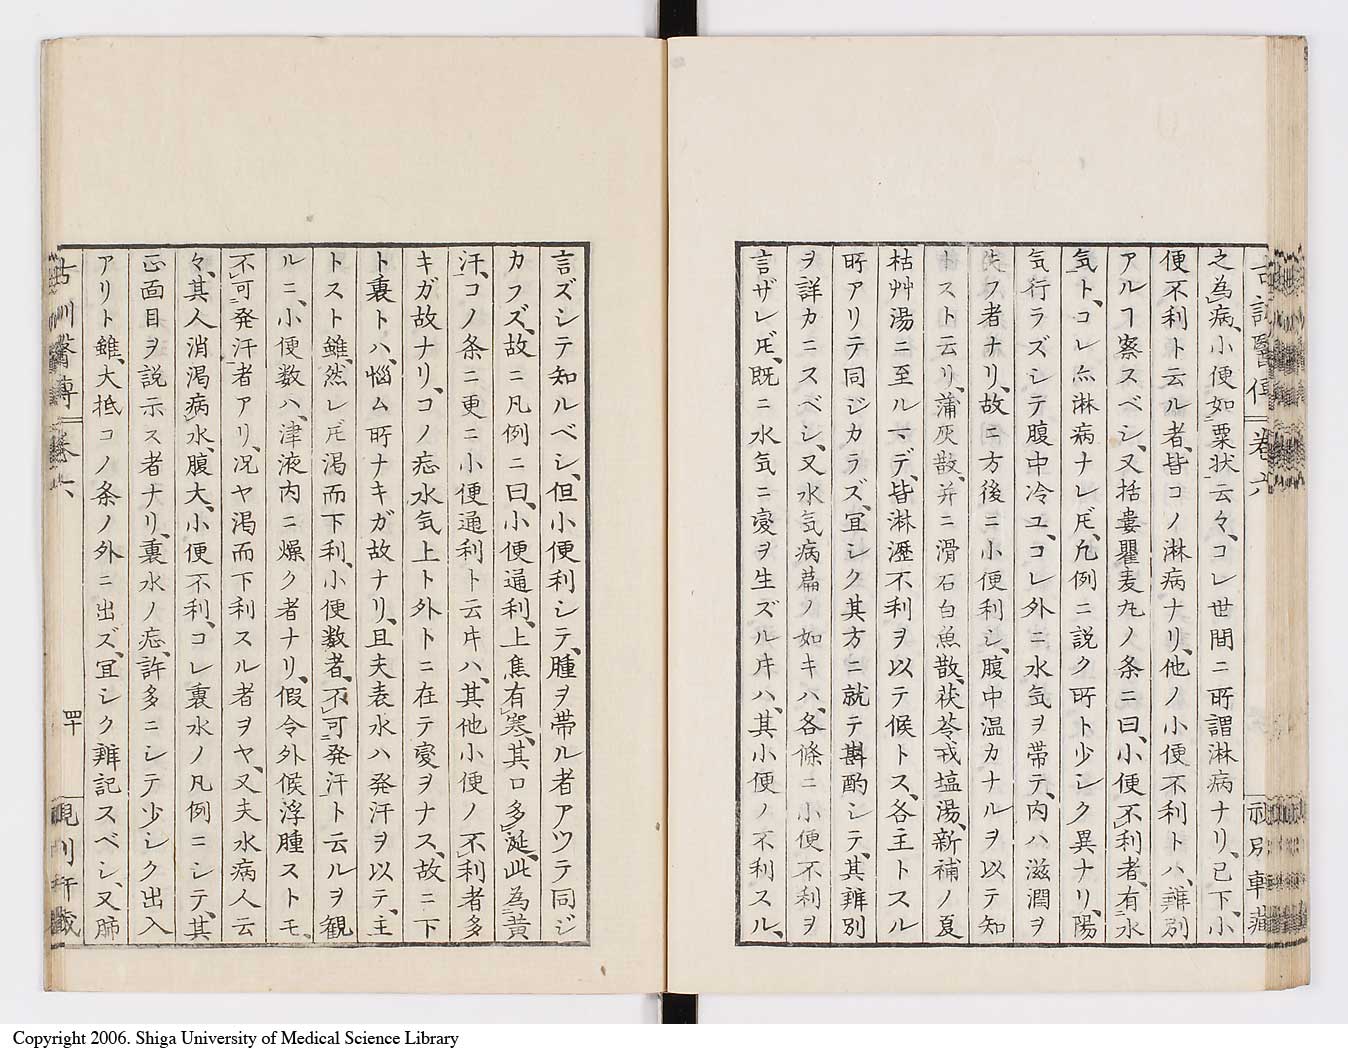 古訓医傳 卷六
之為病、小便如粟状云々、コレ世間ニ所謂淋病ナリ、已下、小
便不利ト云ル者、皆コノ淋病ナリ、他ノ小便不利トハ、辨別
アルヿ察スベシ、又括蔞瞿麦丸ノ条ニ曰、小便不利者、有水
気ト、コレ亦淋病ナレ𪜈、凡例ニ説ク所ト少シク異ナリ、陽
気行ラズシテ腹中冷ユ、コレ外ニ水気ヲ帯テ、内ハ滋潤ヲ
失フ者ナリ、故ニ方後ニ小便利シ、腹中温カナルヲ以テ知
トスト云リ、蒲灰散、并ニ滑石白魚散、茯苓戎塩湯、新補ノ夏
枯艸湯ニ至ルマデ、皆淋瀝不利ヲ以テ候トス、各主トスル
所アリテ同ジカラズ、冝シク其方ニ就テ斟酌シテ、其辨別
ヲ詳カニスベシ、又水気病篇ノ如キハ、各條ニ小便不利ヲ
言ザレ𪜈、既ニ水気ニ変ヲ生ズルキハ、其小便ノ不利スル、
言ズシテ知ルベシ、但小便利シテ、腫ヲ帯ル者アツテ同ジ
カラズ、故ニ凡例ニ曰、小便通利、上焦有寒、其口多涎、此為黄
汗、コノ条ニ更ニ小便通利ト云キハ、其他小便ノ不利者多
キガ故ナリ、コノ𢜤水気上ト外トニ在テ変ヲナス、故ニ下
ト裏トハ、悩ム所ナキガ故ナリ、且夫表水ハ発汗ヲ以テ、主
トスト雖、然レ𪜈渇而下利、小便数者、不可発汗ト云ルヲ観
ルニ、小便数ハ、津液内ニ燥ク者ナリ、假令外候浮腫ストモ、
不可発汗者アリ、况ヤ渇而下利スル者ヲヤ、又夫水病人云
々、其人消渇病水、腹大、小便不利、コレ裏水ノ凡例ニシテ、其
正面目ヲ説示ス者ナリ、裏水ノ𢜤、許多ニシテ少シク出入
アリト雖、大抵コノ条ノ外ニ出ズ、冝シク辨記スベシ、又肺
四十
Copyright 2006. Shiga University of Medical Science Library